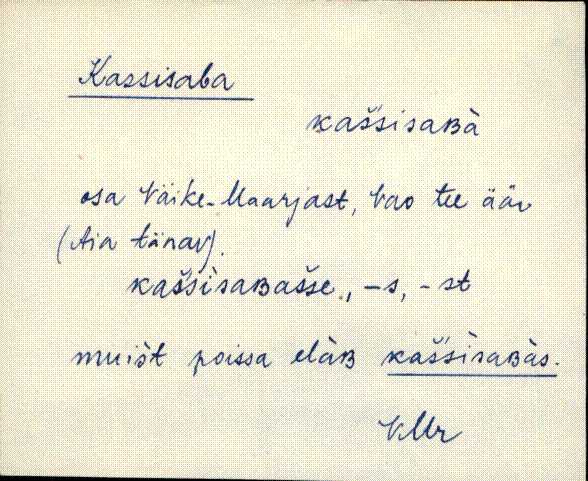 Kassisaba
kaššisaʙà
osa Väike-Maarjast, Vao tee ääres
(Aia tänav).
kaššìsaʙašse, -s, -st
muišt poissa elàʙ kaššìsaʙàs.
VMr